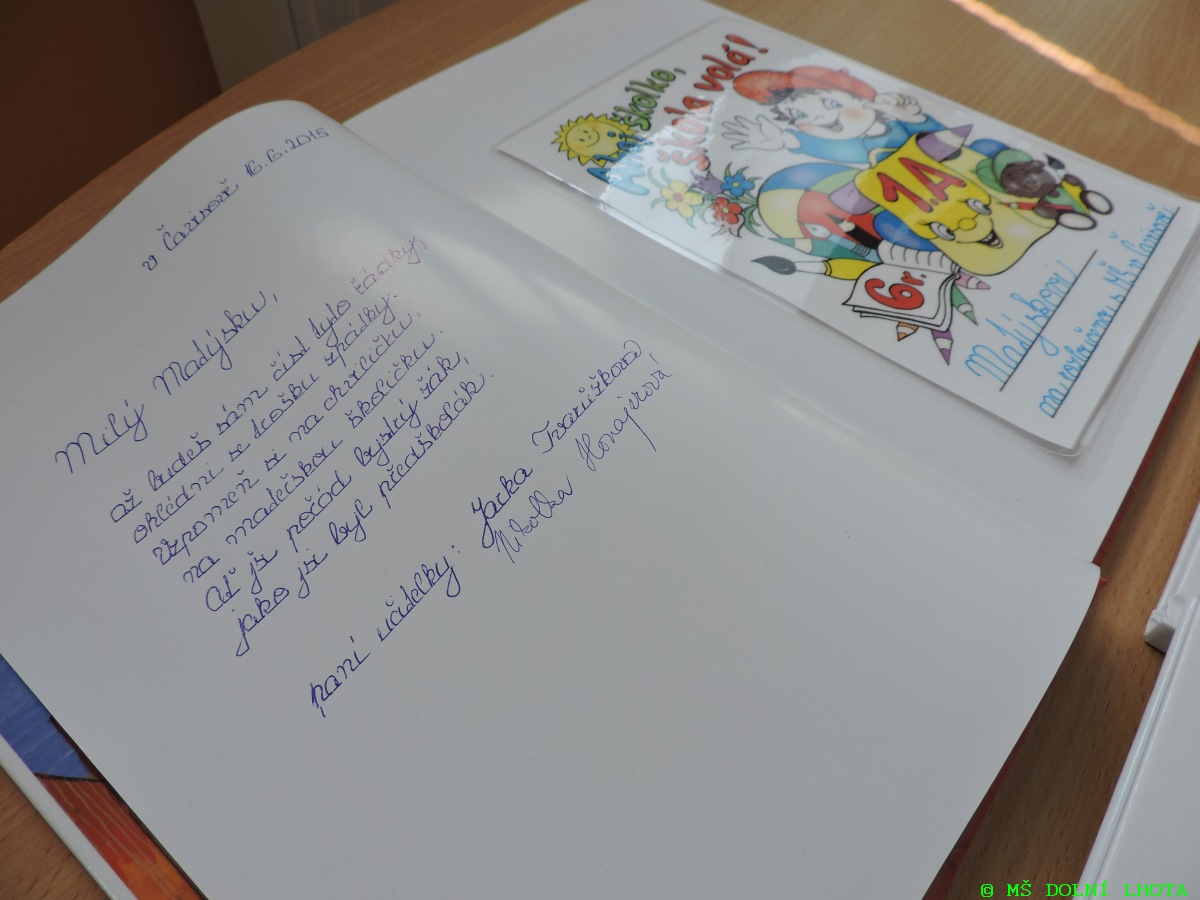 v Čavisově 16.6.2015
Milý Matýsku,
až budeš sám číst tyto řádky,
ohlédni se trošku zpátky.
Vzpomeň si na chviličku
na matečskou školičku.
Ať jsi pořád bystrý žák,
jako jsi byl předškolák.
paní učitelky: Jarka Tvarůžková
Nikolka Honajzrová
Ahoj školko,
škola volá!
1.A
6r.
Matýskovi
na rozloučenou s MŠ v Čavisově.
© MŠ DOLNÍ LHOTA